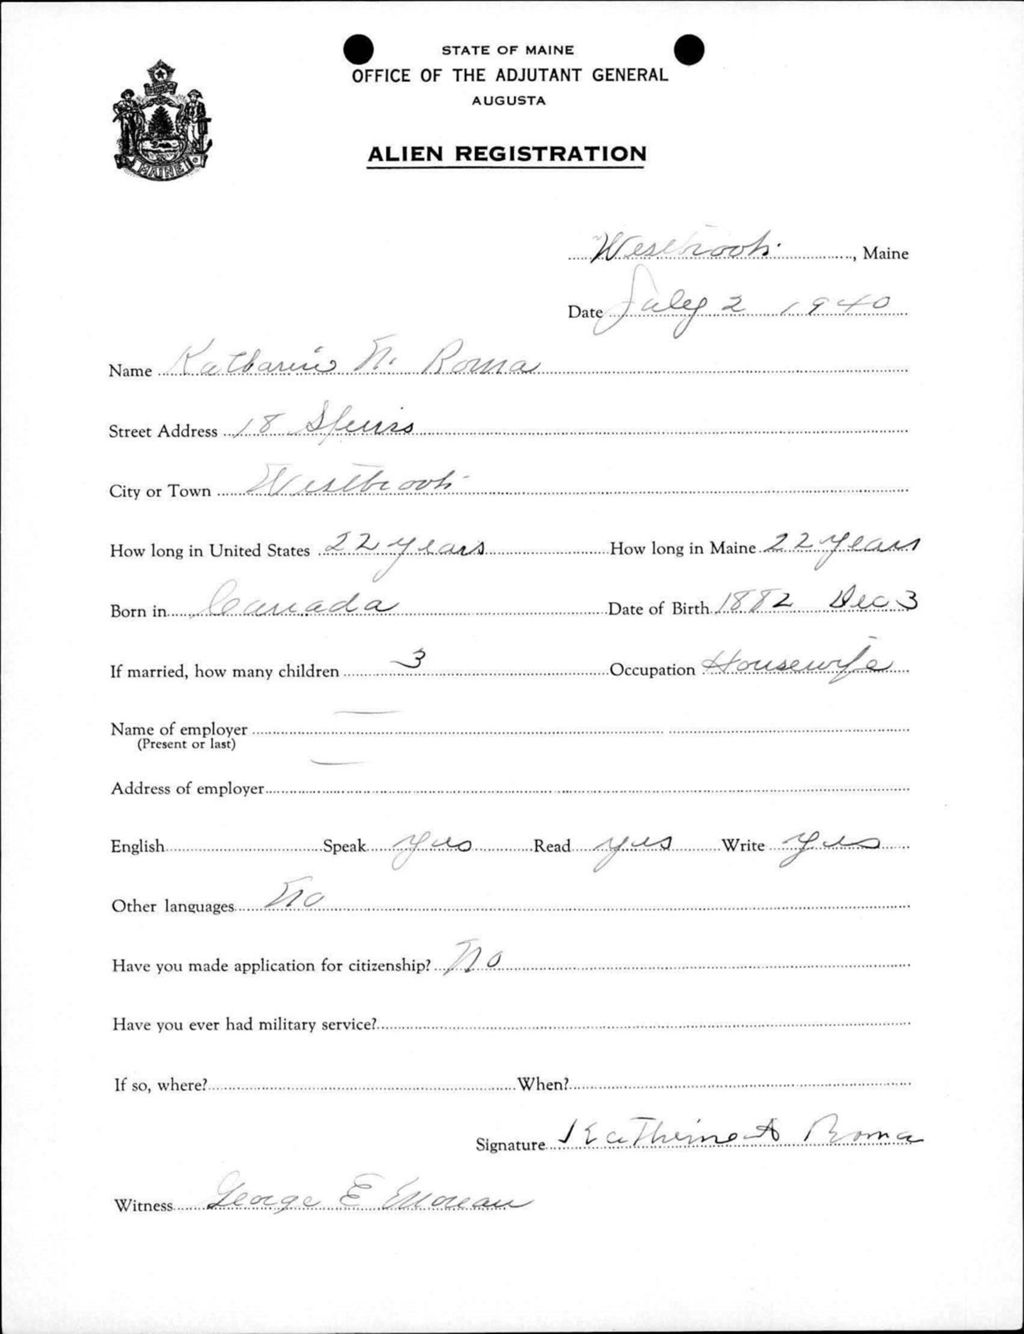 STATE OF MAINE
OFFICE OF THE ADJUTANT GENERAL
AUGUSTA
ALIEN REGISTRATION
MAINE
Westbrook, Maine
Date July 2 1940
Name Katharine Roma
Street Address 18
City or Town Westbrook
How long in United States 22 years How long in Maine 22 years
Born in Canada Date of Birth 1882 Dec 3
If married, how many children 3 Occupation Housewife
Name of employer —
(Present or last)
Address of employer —
English Speak yes Read yes Write yes
Other languages No
Have you made application for citizenship? No
Have you ever had military service?
If so, where? When?
Signature Katherine A Roma
Witness George E Moreau